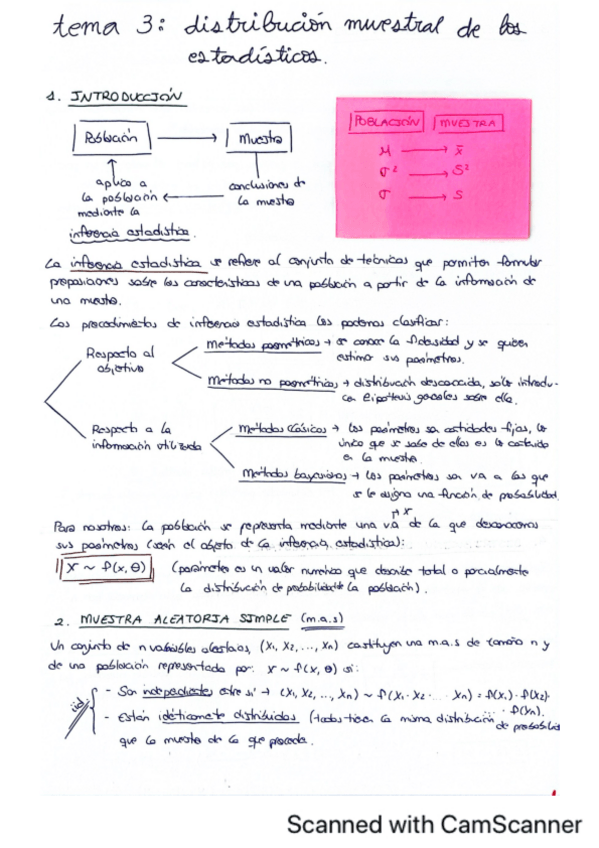 tema 3: distribución muestral de los
estadísticos.
1. INTRODUCCIÓN
Población → Muestra
POBLACIÓN MUESTRA
μ → x̄
σ² → S²
σ → S
aplico a
la población ← conclusiones de
mediante la la muestra
inferencia estadística.
La inferencia estadística se refiere al conjunto de técnicas que permiten formular
proposiciones sobre las características de una población a partir de la información de
una muestra.
Los procedimientos de inferencia estadística los podemos clasificar:
Respecto al
objetivo
Métodos paramétricos → se conoce la y se quieren
estimar sus parámetros.
Métodos no paramétricos → distribución desconocida, solo introdu-
cen hipótesis generales sobre ella.
Respecto a la
información utilizada
Métodos clásicos → los parámetros son cantidades fijas, lo
único que se sabe de ellos es lo contenido
en la muestra.
Métodos bayesianos → los parámetros son v.a a las que
se le asigna una función de probabilidad.
→ X
Para nosotros: la población se representa mediante una v.a de la que desconocemos
sus parámetros (serán el objeto de la inferencia estadística):
X ~ f(x, θ) (parámetro es un valor numérico que describe total o parcialmente
la distribución de probabilidad de la población).
2. MUESTRA ALEATORIA SIMPLE (m.a.s)
Un conjunto de n variables aleatorias, (X₁, X₂, ..., Xn) constituyen una m.a.s de tamaño n y
de una población representada por: X ~ f(x, θ) si:
iid
- Son independientes entre sí → (X₁, X₂, ..., Xn) ~ f(X₁· X₂ · ... · Xn) = f(X₁) · f(X₂)·
... · f(Xn).
- Están idénticamente distribuidos (todas tienen la misma distribución de probabilidad
que la muestra de la que proceda.
Scanned with CamScanner